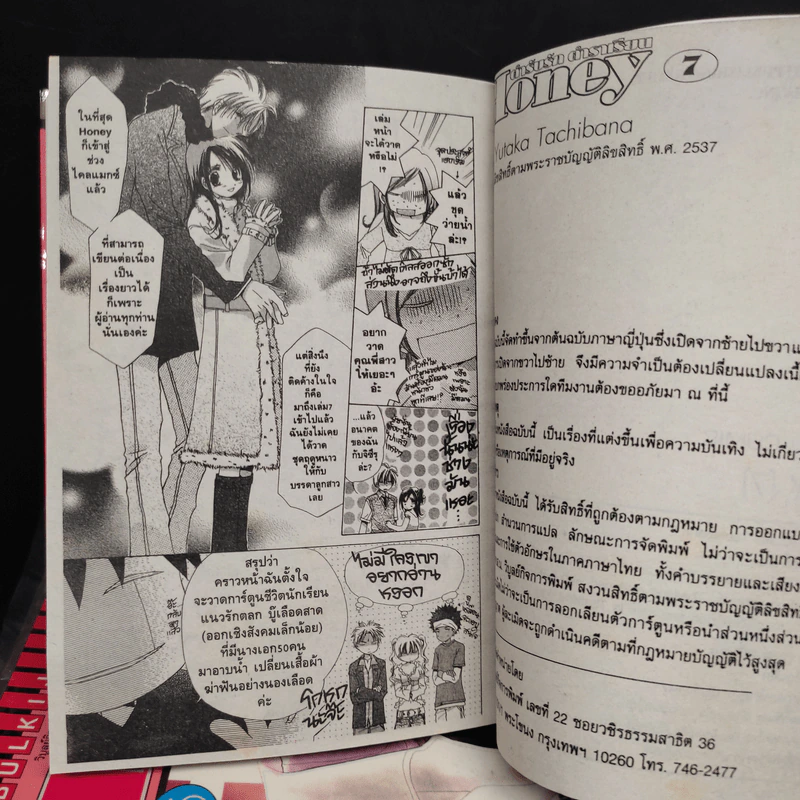 ในที่สุด
Honey
ก็เข้าสู่
ช่วง
ไคลแมกซ์
แล้ว
ที่สามารถ
เขียนต่อเนื่อง
เป็น
เรื่องยาวได้
ก็เพราะ
ผู้อ่านทุกท่าน
นั่นเองค่ะ
เล่ม
หน้า
จะได้วาด
หรือไม่
!?
แล้ว
ชุด
ว่ายน้ำ
ล่ะ!?
อยาก
วาด
คุณพี่สาว
ให้เยอะๆ
อ้ะ
แต่สิ่งนึง
ที่ยัง
ติดค้างในใจ
ก็คือ
มาถึงเล่ม7
เข้าไปแล้ว
ฉันยังไม่เคย
ได้วาด
ชุดฤดูหนาว
ให้กับ
บรรดาลูกสาว
เลย
...แล้ว
อนาคต
ของฉัน
กับจิซึรุ
ล่ะ?
เรื่อง
นั้นน่ะ
ช่าง
มันเหอะ
...
สรุปว่า
คราวหน้าฉันตั้งใจ
จะวาดการ์ตูนชีวิตนักเรียน
แนวรักตลก บู๊เลือดสาด
(ออกเชิงสังคมเล็กน้อย)
ที่มีนางเอก50คน
มาอาบน้ำ เปลี่ยนเสื้อผ้า
ฆ่าฟันอย่างนองเลือด
ค่ะ
ไม่มีใครเขา
อยากอ่าน
หรอก
Honey 7
Yutaka Tachibana
สิทธิ์ตามพระราชบัญญัติลิขสิทธิ์ พ.ศ. 2537
ฉบับนี้จัดทำขึ้นจากต้นฉบับภาษาญี่ปุ่นซึ่งเปิดจากซ้ายไปขวาแ
เปิดจากขวาไปซ้าย จึงมีความจำเป็นต้องเปลี่ยนแปลงเนื้
พร่องประการใดทีมงานต้องขออภัยมา ณ ที่นี้
หนังสือฉบับนี้ เป็นเรื่องที่แต่งขึ้นเพื่อความบันเทิง ไม่เกี่ยว
เหตุการณ์ที่มีอยู่จริง
หนังสือฉบับนี้ ได้รับสิทธิ์ที่ถูกต้องตามกฎหมาย การออกแบ
สำนวนการแปล ลักษณะการจัดพิมพ์ ไม่ว่าจะเป็นการ
การใช้ตัวอักษรในภาคภาษาไทย ทั้งคำบรรยายและเสียง
วิบูลย์กิจการพิมพ์ สงวนสิทธิ์ตามพระราชบัญญัติลิขสิท
ไม่ว่าจะเป็นการลอกเลียนตัวการ์ตูนหรือนำส่วนหนึ่งส่วน
ผู้ละเมิดจะถูกดำเนินคดีตามที่กฎหมายบัญญัติไว้สูงสุด
หน่ายโดย
กิจการพิมพ์ เลขที่ 22 ซอยวชิรธรรมสาธิต 36
พระโขนง กรุงเทพฯ 10260 โทร. 746-2477
BULKI